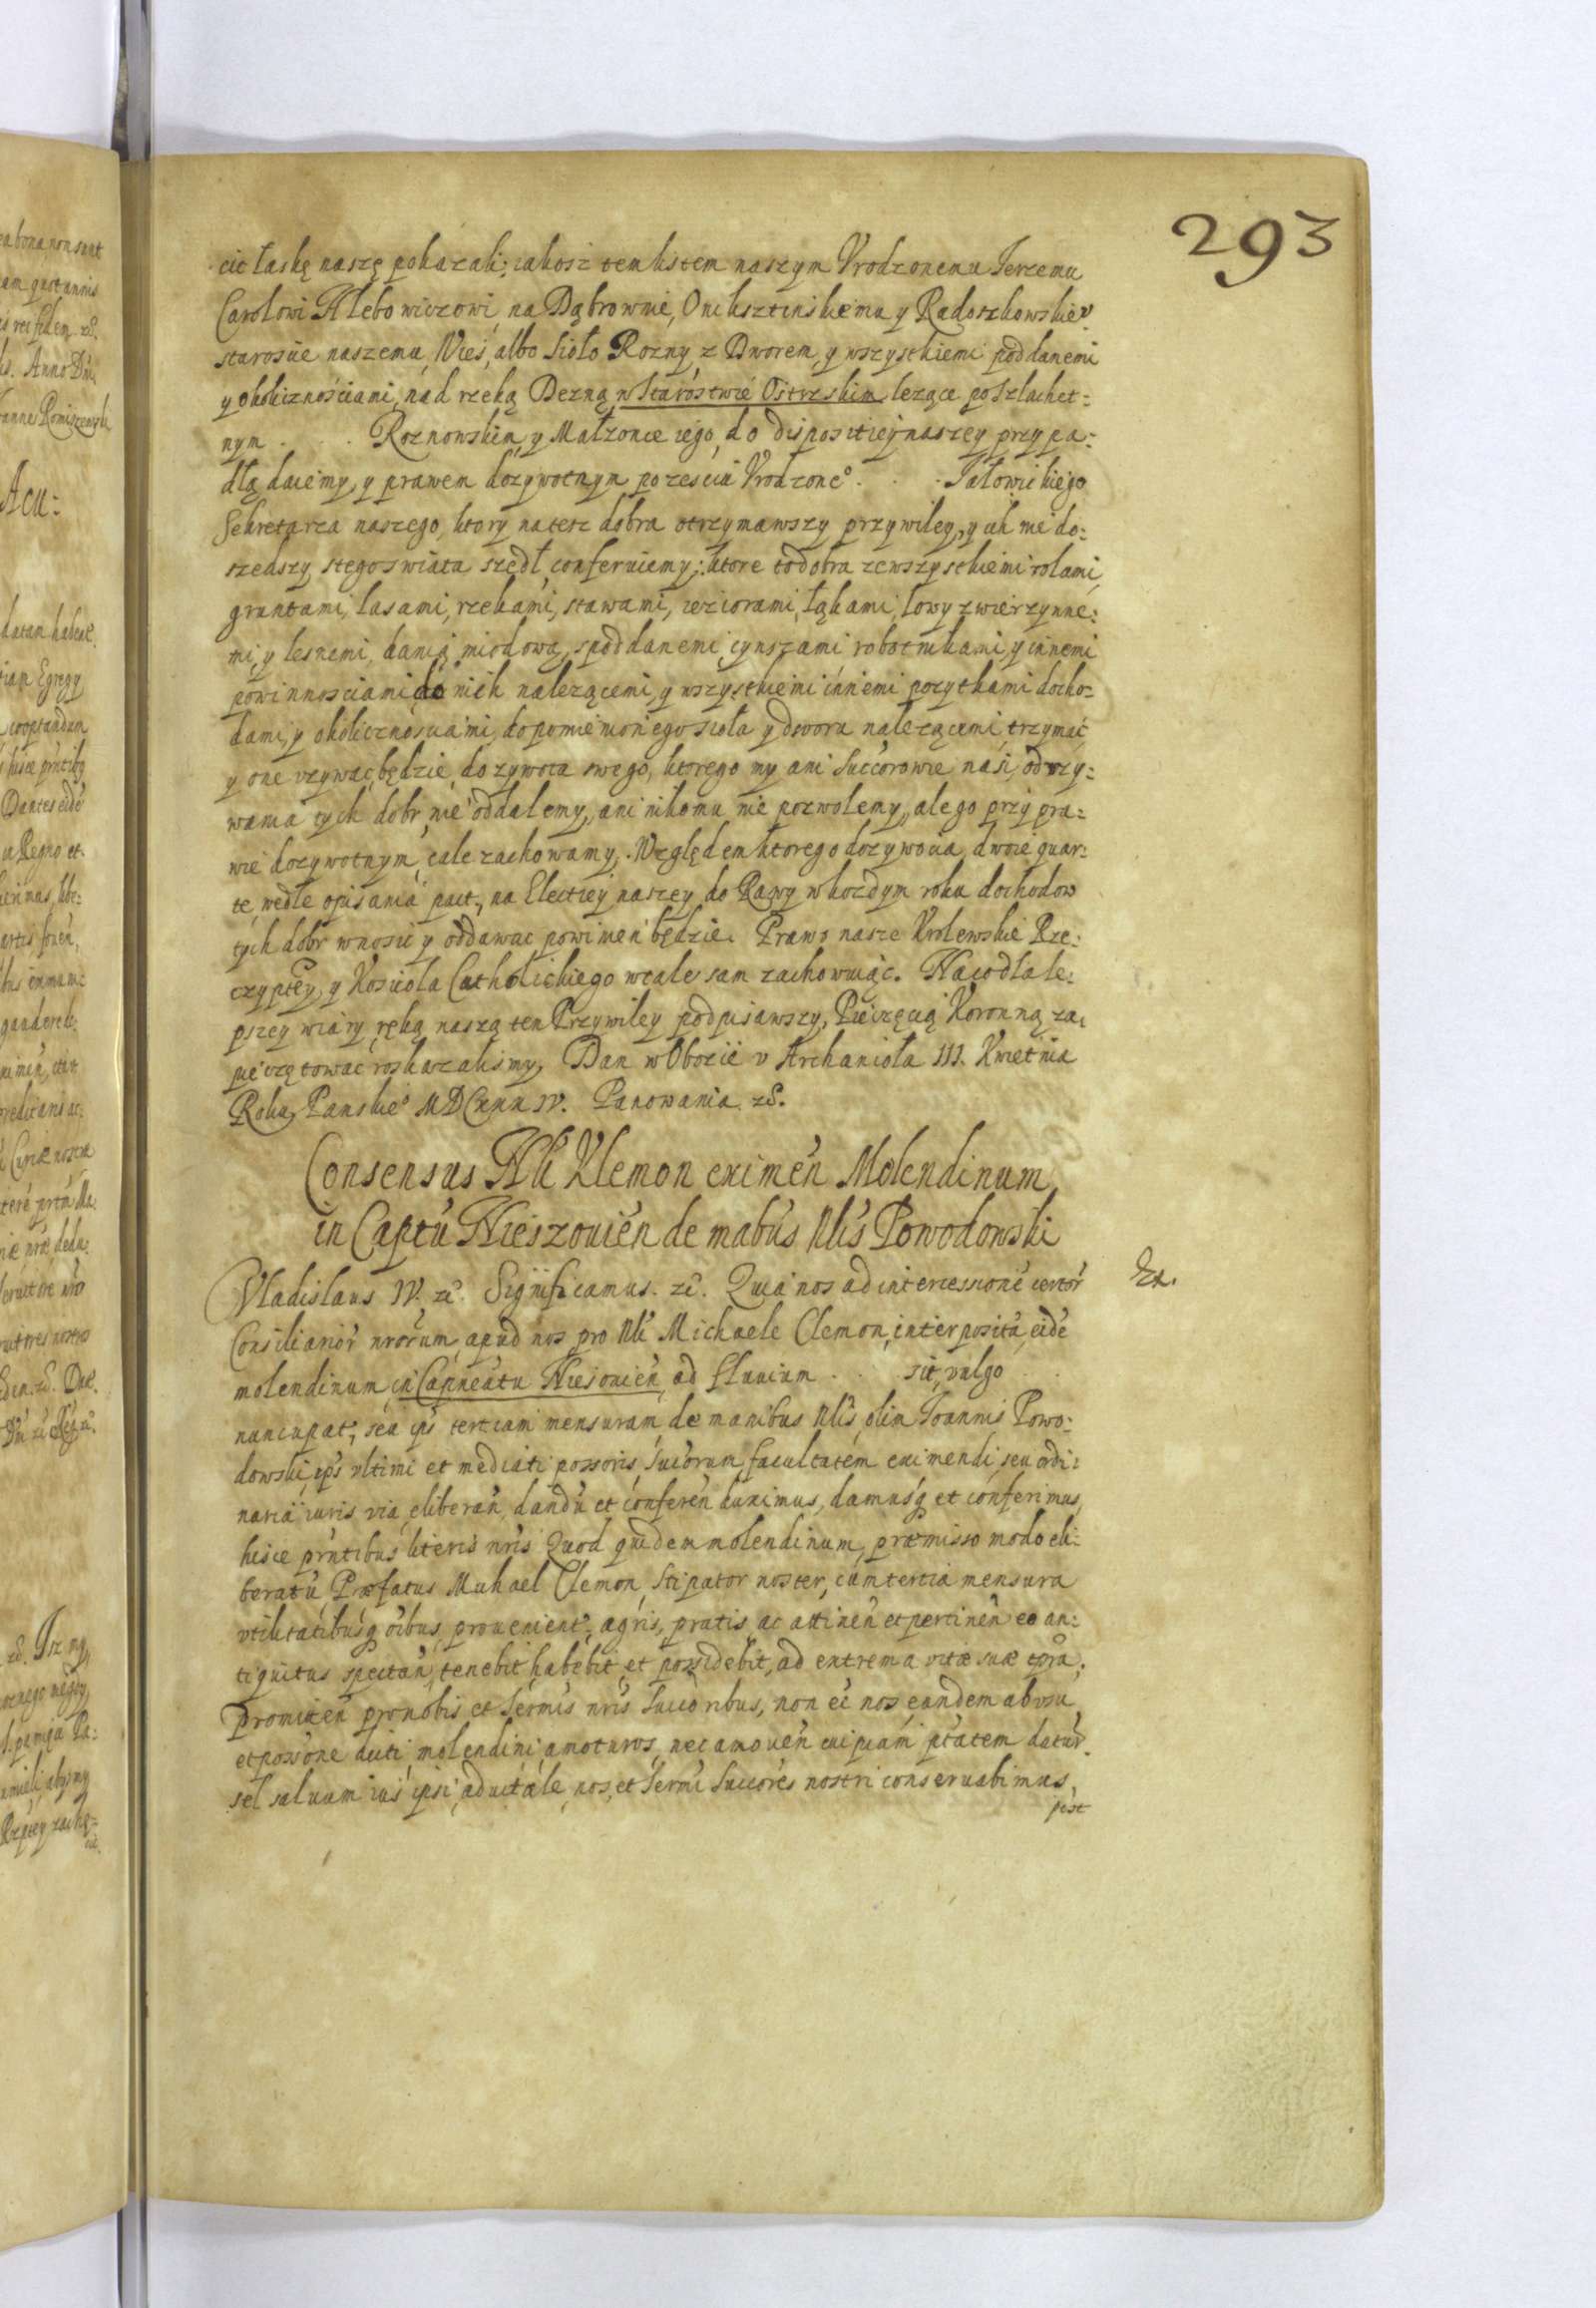 293
cić łaskę naszę pokazali; iakosz tem listem naszym Vrodzonemu Jerzemu
Carolowi Hlebowiczowi, na Dąbrownie, Oniksztinskiemu y Radoszkowskieo
staroscie naszemu, Wieś, albo Sioło Rozny, z Dworem, y wszystkiemi poddanemi
y okolicznościami, nad rzeką Dezną, w Starostwie Ostrzskim lezące po szlachet=
nym . . . Roznowskim, y Małzonce iego, do dispositiey naszey przypa=
dłą daiemy, y prawem dozywotnym po zesciu Vrodzoneo . . . Jałowickiego
Sekretarza naszego, ktory na tesz dobra otrzymawszy przywiley, y ich nie do=
szedszy, stego swiata szedł, conferuiemy; ktore to dobra ze wszystkiemi rolami,
gruntami, lasami, rzekami, stawami, ieziorami, łąkami, łowy zwierzynne=
mi, y lesnemi, danią miodową, spoddanemi, cynszami robotnikami, y innemi
powinnosciami do nich nalezącemi, y wszystkiemi inniemi pozytkami docho=
dami, y okolicznosciami, do pomienionego sioła y dworu nalezącemi, trzymać
y one vzywac będzie, do zywota swego, ktorego my ani Succorowie nasi, od vzy=
wania tych dobr, nie oddalemy, ani nikomu nie pozwolemy, ale go przy pra=
wie dozywotnym, cale zachowamy. Względem ktorego dozywocia, dwoie quar=
te, wedle opisania pact, na Electiey naszey do Rawy w kozdym roku dochodow
tych dobr wnosic y oddawac powinien będzie. Prawo nasze Krolewskie Rze=
czyptey, y Kosciola Catholickiego wcale sam zachowuiąc. Na co dla le=
pszey wiary, ręką naszą ten Przywiley podpisawszy, Pieczęcią Koronną za=
pieczętowac roskazalismy. Dan w Obozie v Archanioła III. Kwietnia
Roku Panskieo MDCXXXIV. Panowania z&.
Consensus Nli Klemon eximen Molendinum
in Captu Nieszouien de mabus Nlis Powodowski
Vladislaus IV. zc. Significamus. zc. Quia nos ad intercessione certor
Consiliarior nrorum, apud nos pro Nli Michaele Clemon, interposita, eide
molendinum, in Capneatu Niesouien, ad fluuium . . sit, vulgo . .
nuncupat, seu ips tertiam mensuram, de manibus Nlis, olim Joannis Powo=
dowski, ips vltimi et mediati possoris, Sucorum, facultatem eximendi, seu ordi=
naria iuris via, eliberan, dandu et conferen duximus, damusq et conferimus,
hisce prntibus literis nris Quod quidem molendinum, præmisso modo eli=
beratu Præfatus Michael Clemon, Stipator noster, cum tertia mensura
vtilitatibusq oibus, prouenient, agris, pratis, ac attinen et pertinen eo an=
tiquitus spectan, tenebit, habebit, et possidebit, ad extrema vitæ suæ tpra;
Promitten pro nobis et Sermis nris Succoribus, non ee nos, eundem ab vsu
et possone dicti, molendini, amoturos, nec amouen cuipiam ptatem datur.
sel saluum ius ipsi, aduitale, nos, et Sermi Succores nostri conseruabimus,
pist